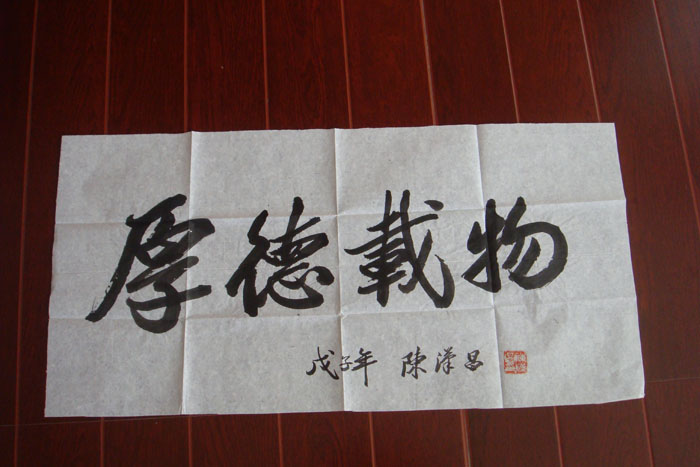 厚德載物
戊子年 陳漢昌